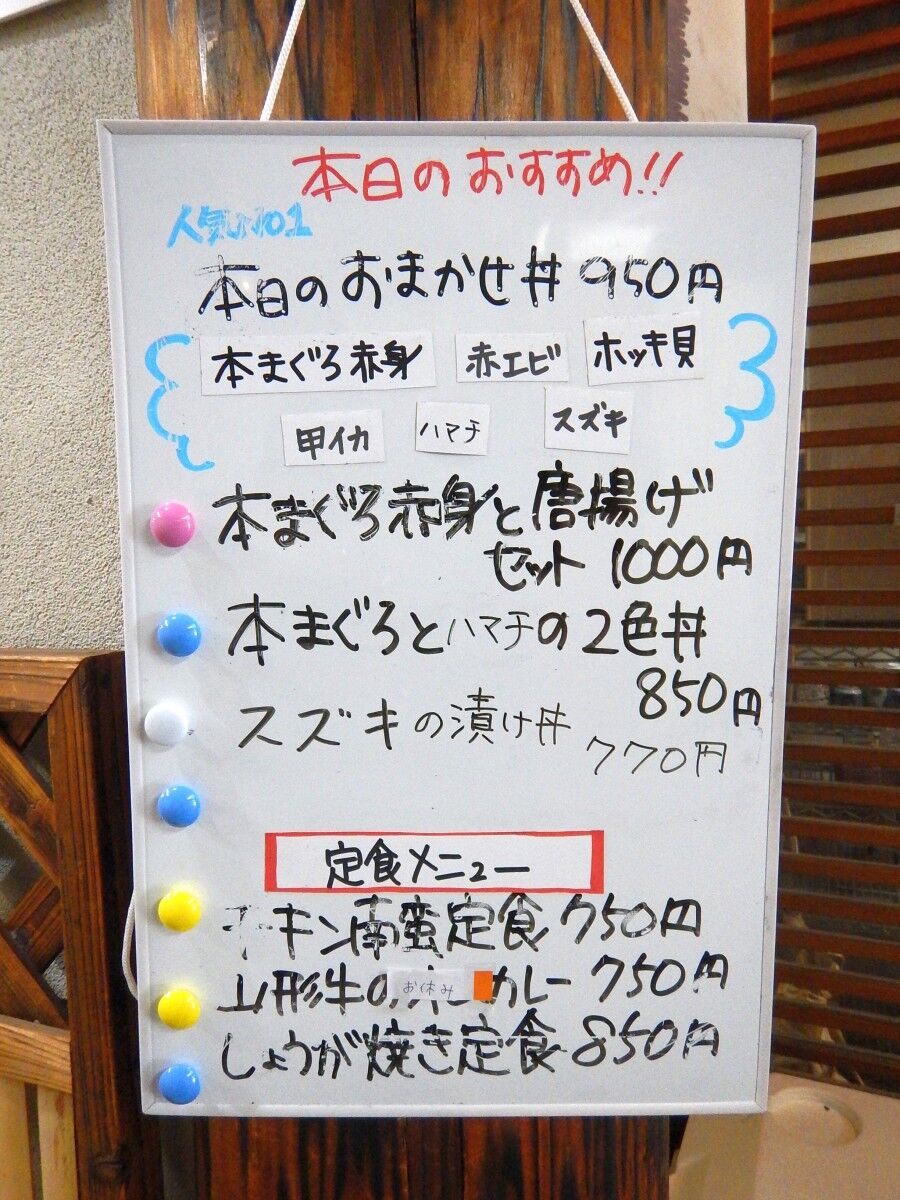 本日のおすすめ!!
人気NO1
本日のおまかせ丼 950円
本まぐろ赤身 赤エビ ホッキ貝
甲イカ ハマチ スズキ
本まぐろ赤身と唐揚げ
セット 1000円
本まぐろとハマチの2色丼
850円
スズキの漬け丼
770円
定食メニュー
チキン南蛮定食 750円
山形牛の お休み カレー 750円
しょうが焼き定食 850円